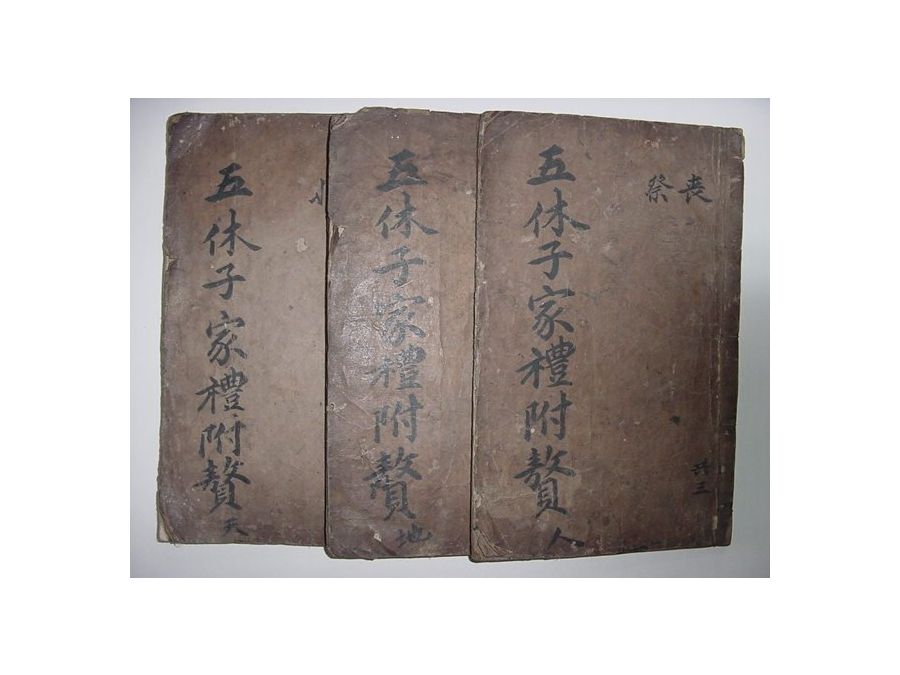 五休子家禮附贅 天
五休子家禮附贅 地
喪
祭
五休子家禮附贅 人
共三